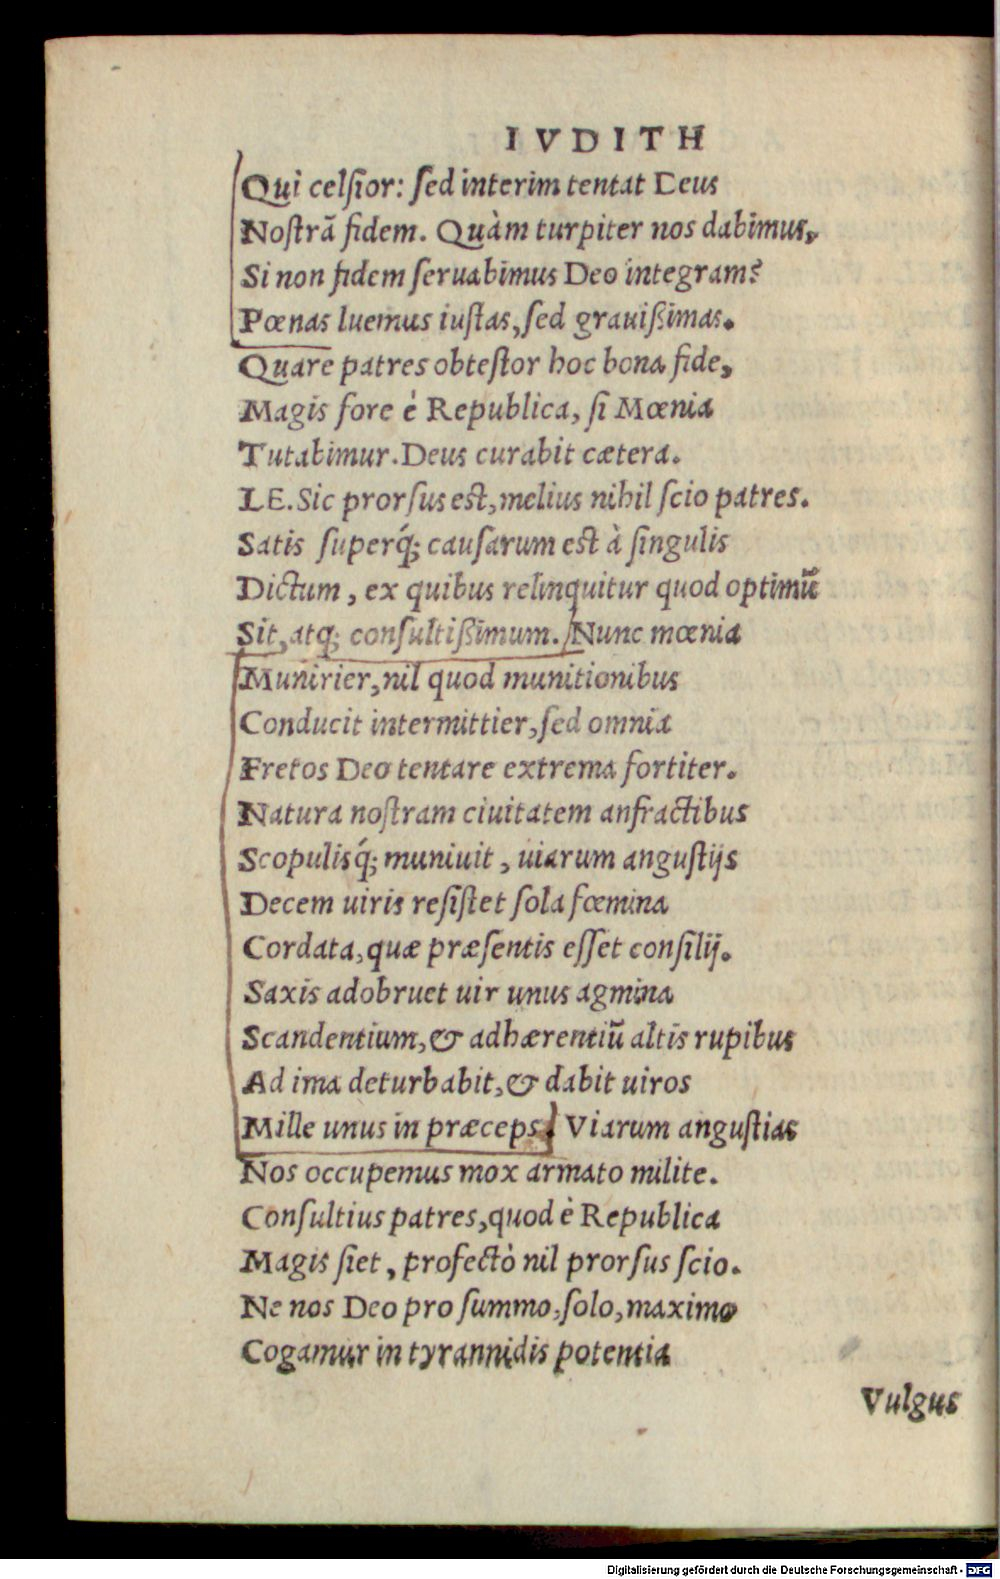 IVDITH
Qui celſior: ſed interim tentat Deus
Noſtrã fidem. Quàm turpiter nos dabimus,
Si non fidem ſeruabimus Deo integram?
Pœnas luemus iuſtas, ſed grauißimas.
Quare patres obteſtor hoc bona fide,
Magis fore è Republica, ſi Mœnia
Tutabimur. Deus curabit cætera.
LE. Sic prorſus est, melius nihil ſcio patres.
Satis ſuperq́; cauſarum est à ſingulis
Dictum, ex quibus relinquitur quod optimũ
Sit, atq; conſultißimum. Nunc mœnia
Munirier, nil quod munitionibus
Conducit intermittier, ſed omnia
Fretos Deo tentare extrema fortiter.
Natura noſtram ciuitatem anfractibus
Scopulisq́; muniuit, uiarum anguſtijs
Decem uiris reſiſtet ſola fœmina
Cordata, quæ præſentis eſſet conſilij.
Saxis adobruet uir unus agmina
Scandentium, & adhærentiũ altis rupibus
Ad ima deturbabit, & dabit uiros
Mille unus in præceps. Viarum anguſtias
Nos occupemus mox armato milite.
Conſultius patres, quod è Republica
Magis ſiet, profectò nil prorſus ſcio.
Ne nos Deo pro ſummo, ſolo, maximo
Cogamur in tyrannidis potentia
Vulgus
Digitalisierung gefördert durch die Deutsche Forschungsgemeinschaft - DFG